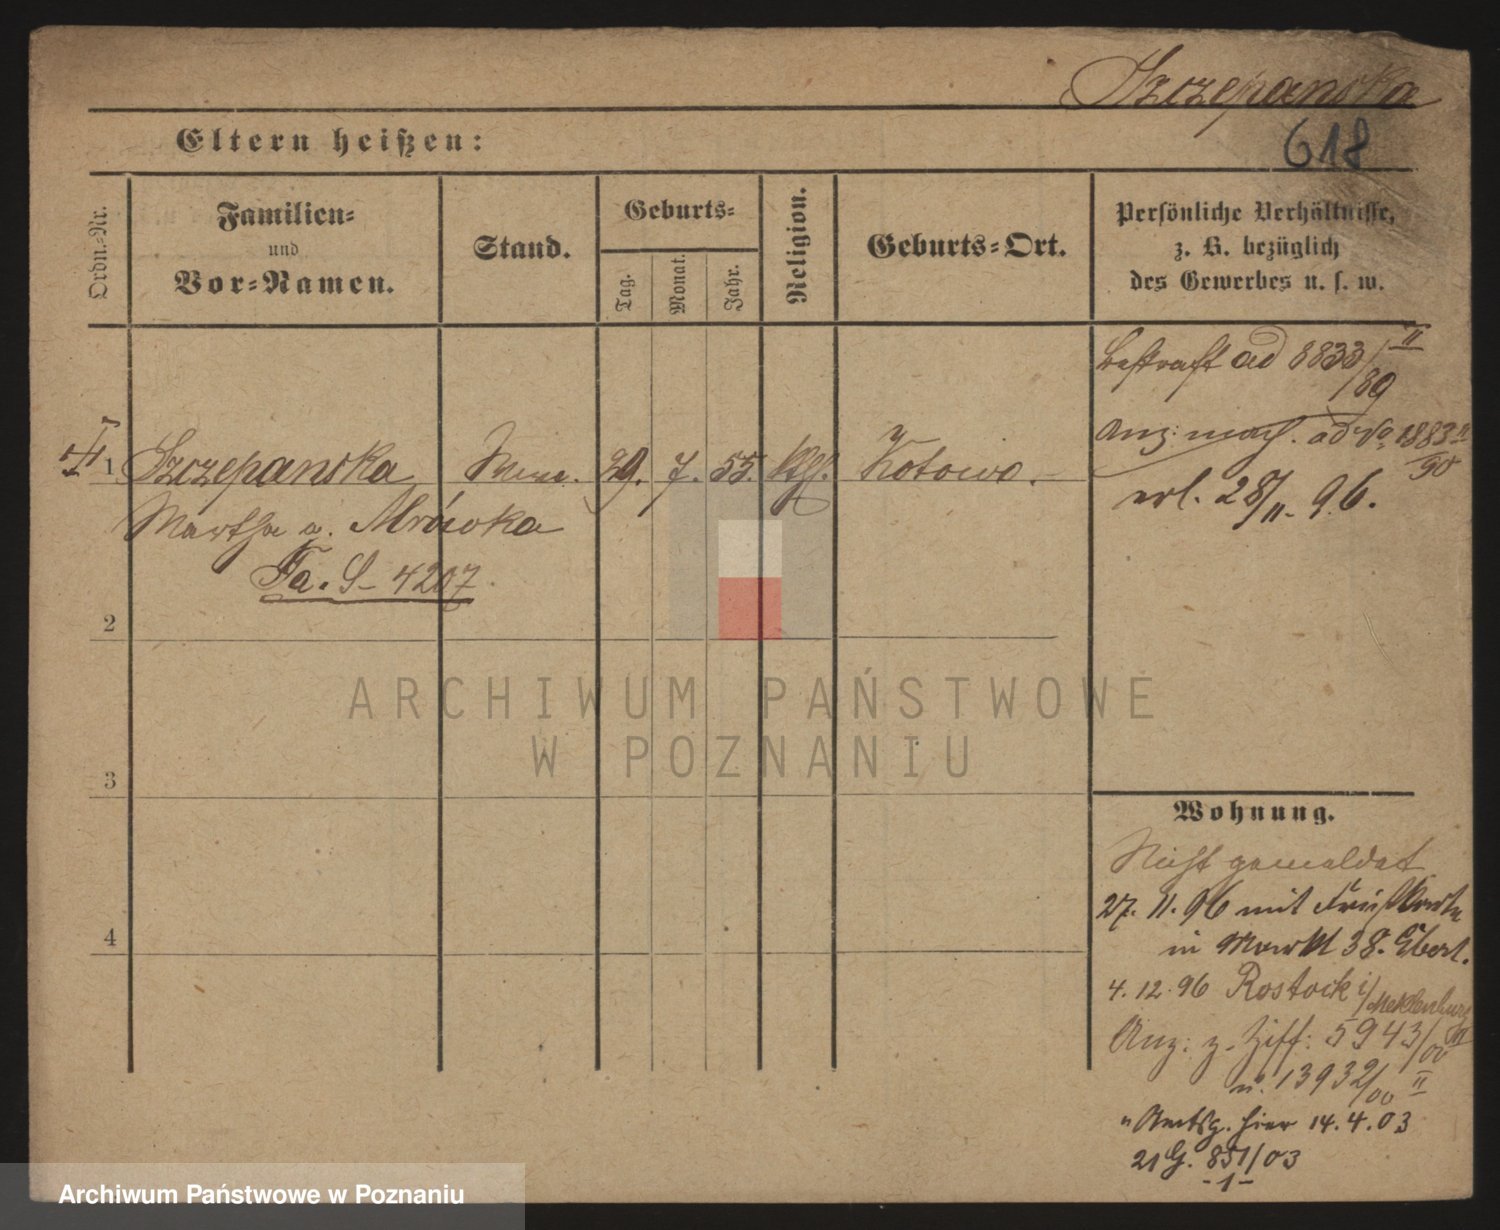 Szczepanska
618
Eltern heißen:
Ordn.-Nr.
Familien-
und
Vor-Namen.
Stand.
Geburts-
Tag.
Monat.
Jahr.
Religion.
Geburts-Ort.
Persönliche Verhältnisse,
z. B. bezüglich
des Gewerbes u. s. w.
bestraft ad 8833/89 II
Anz: mach. ad No 1883 II/90
erl. 28/11. 96.
1 Szczepanska 29. 7. 55. Kth. Kotowo.
Martha a. Mrówka
Fa. S- 4207
2
3
4
Wohnung.
Nicht gemeldet
27. 11. 96 mit
in Markt 38.
4. 12. 96 Rostock i/Meklenburg
Anz: z. Ziff: 5943/00 III
u. 13932/00 II
" Amtsg. hier 14. 4. 03
21 G. 851/03
-1-
ARCHIWUM PAŃSTWOWE
W POZNANIU
Archiwum Państwowe w Poznaniu